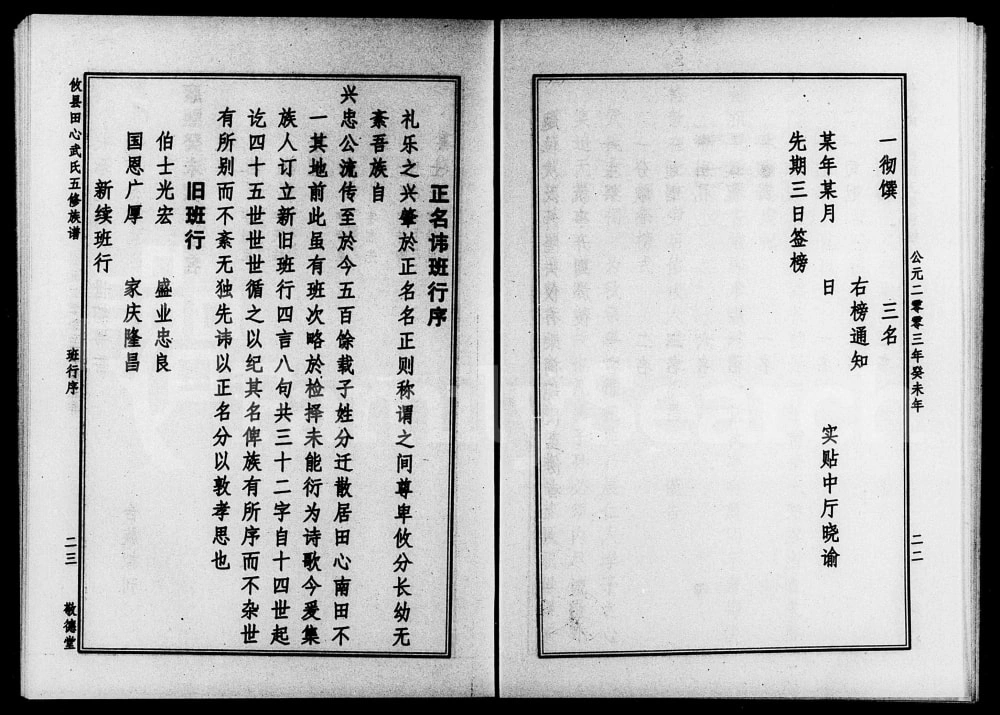 公元二零零三年癸未年
二二
一彻馔　三名
右榜通知
某年某月　日　实贴中厅晓谕
先期三日签榜
正名讳班行序
礼乐之兴肇於正名名正则称谓之间尊卑攸分长幼无
紊吾族自
兴忠公流传至於今五百馀载子姓分迁散居田心南田不
一其地前此虽有班次略於检择未能衍为诗歌今爰集
族人订立新旧班行四言八句共三十二字自十四世起
讫四十五世世世循之以纪其名俾族有所序而不杂世
有所别而不紊无独先讳以正名分以敦孝思也
旧班行
伯士光宏　盛业忠良
国恩广厚　家庆隆昌
新续班行
攸县田心武氏五修族谱
班行序
二三
敬德堂